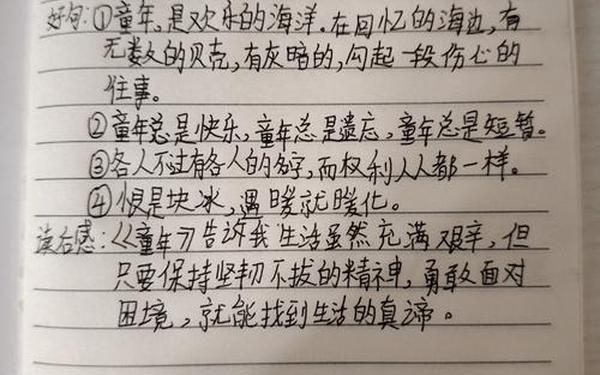 好句:①童年,是欢乐的海洋.在回忆的海边,有
无数的贝壳,有灰暗的,勾起一段伤心的
往事。
②童年总是快乐,童年总是遗忘,童年总是短暂。
③各人不过有各人的名字,而权利人人都一样。
④恨是块冰,遇暖就暖化。
读后感:《童年》告诉我生活虽然充满艰辛,但
只要保持坚韧不拔的精神,勇敢面对
困境,就能找到生活的真谛。